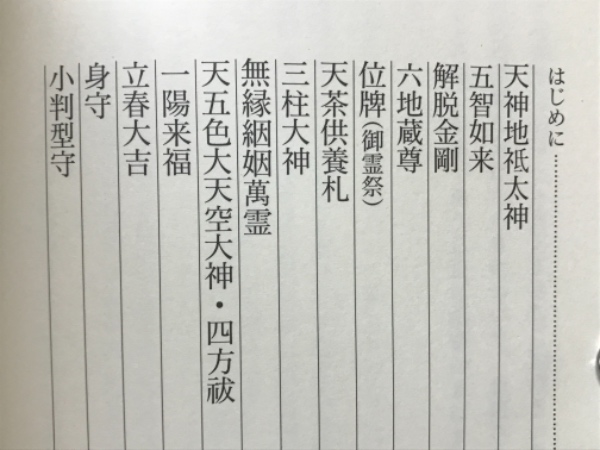 はじめに
天神地祇太神
五智如来
解脱金剛
六地蔵尊
位牌（御霊祭）
天茶供養札
三柱大神
無縁絪姻萬霊
天五色大天空大神・四方祓
一陽来福
立春大吉
身守
小判型守